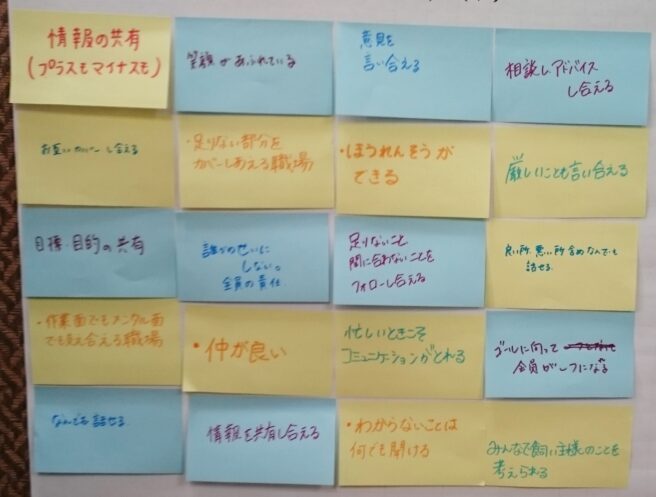 情報の共有
(プラスもマイナスも)
笑顔があふれている
意見を
言い合える
相談しアドバイス
し合える
お互いカバーし合える
・足りない部分を
カバーしあえる職場
・ほうれんそうが
できる
厳しいことも言い合える
目標・目的の共有
誰かのせいに
しない。
全員の責任
足りないこと
間に合わないことを
フォローし合える
良い所、悪い所含めなんでも
話せる。
・作業面でもメンタル面
でも支え合える職場
・仲が良い
忙しいときこそ
コミュニケーションがとれる
ゴールに向って
全員が一つになる
なんでも話せる
情報を共有し合える
・わからないことは
何でも聞ける
みんなで飼い主様のことを
考えられる